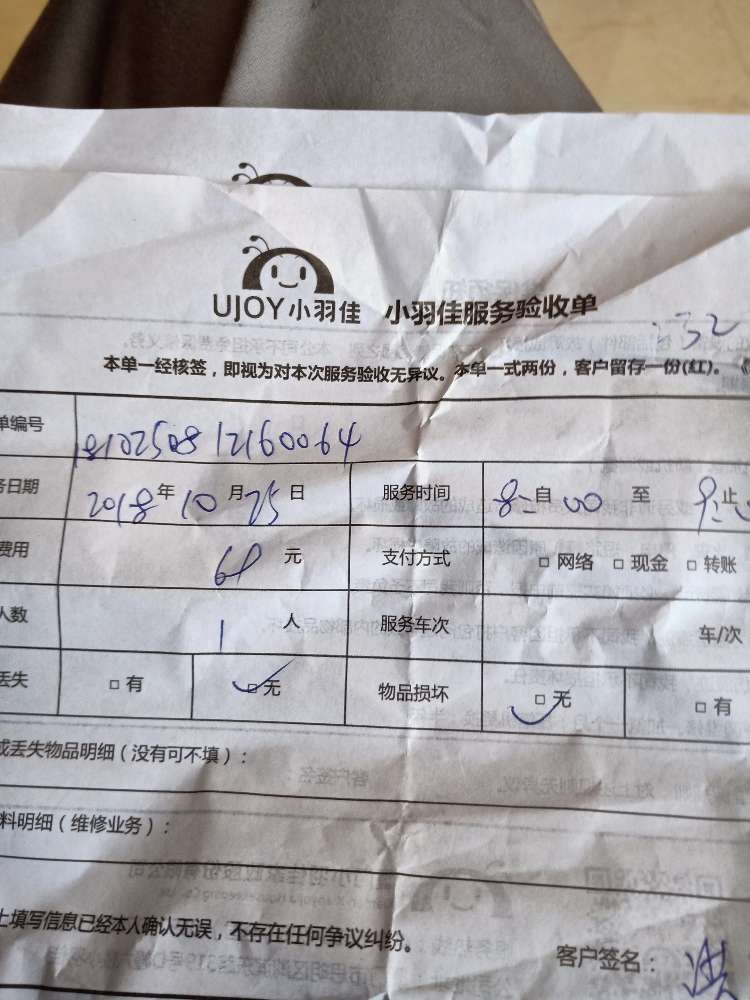 UJOY小羽佳 小羽佳服务验收单
本单一经核签，即视为对本次服务验收无异议。本单一式两份，客户留存一份(红)。《
单编号 810250812160064
务日期 2018年10月25日 服务时间 8 自 00 至 9 止
费用 元 支付方式 □ 网络 □ 现金 □ 转账
人数 1 人 服务车次 车/次
丢失 □ 有 □ 无 物品损坏 □ 无 □ 有
或丢失物品明细（没有可不填）：
料明细（维修业务）：
上填写信息已经本人确认无误，不存在任何争议纠纷。
客户签名： 洪